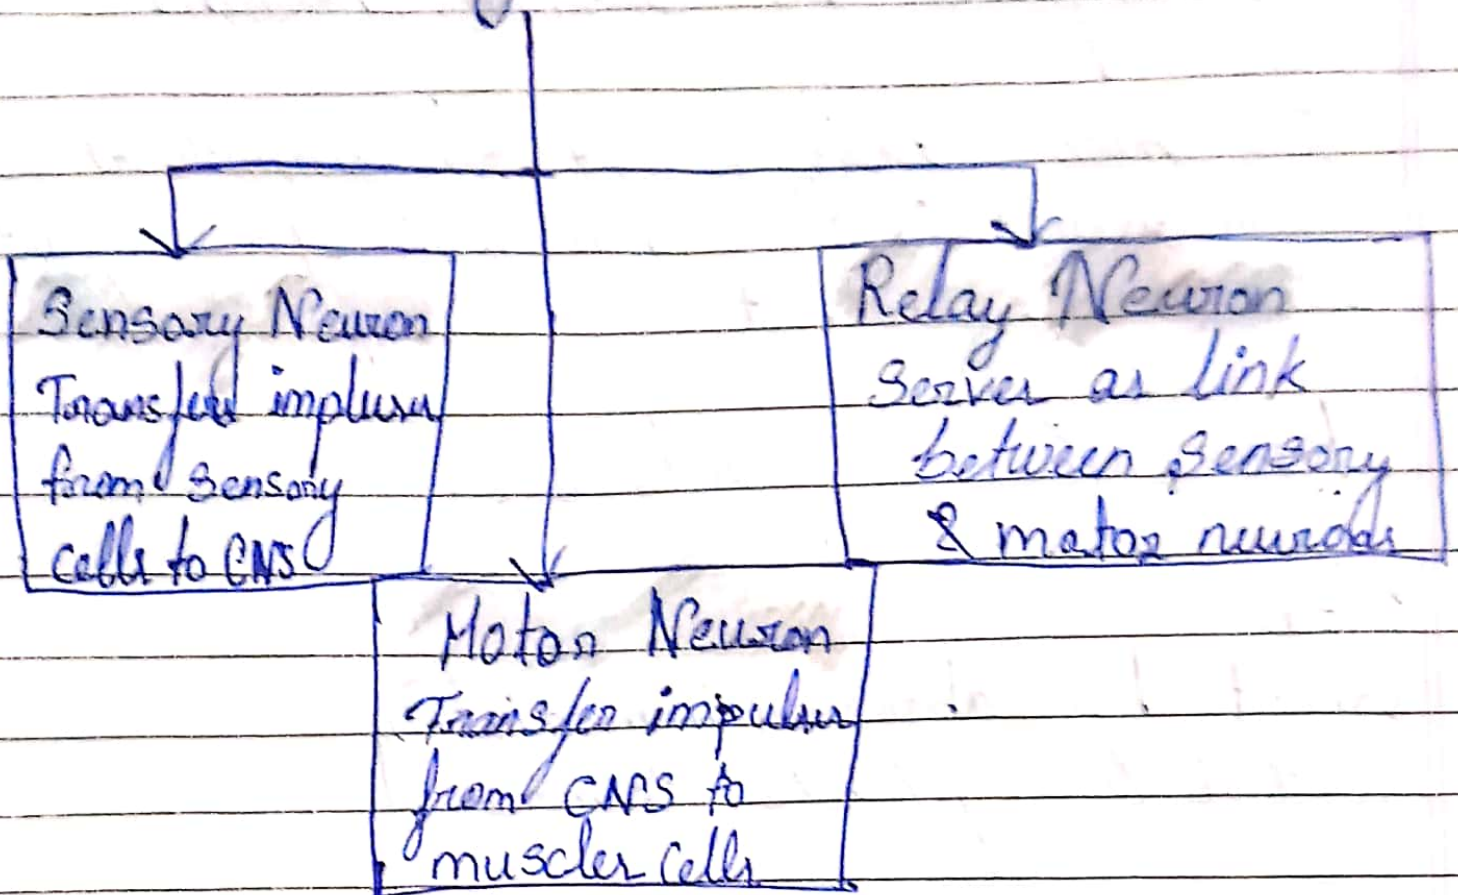 Sensory Neuron
Transfers impluses
from sensory
cells to CNS
Relay Neuron
Serves as link
between sensory
& motor neurons
Motor Neuron
Transfer impulses
from CNS to
muscles cells